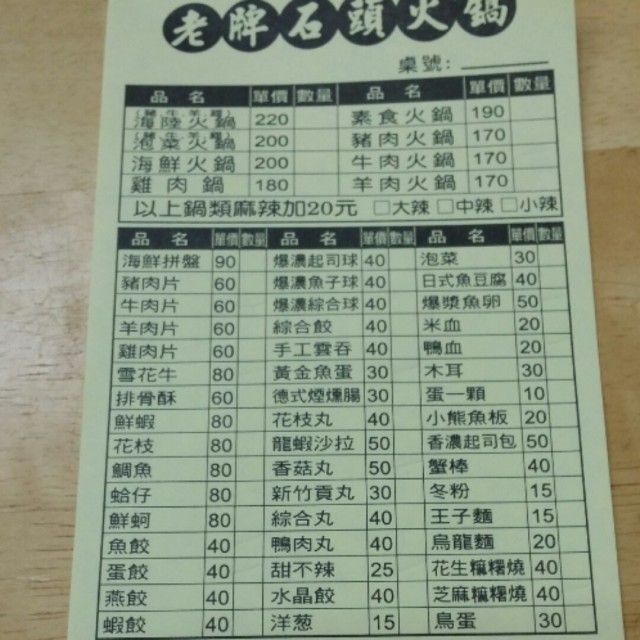 老牌石頭火鍋
桌號：
品名 單價 數量 品名 單價 數量
海陸火鍋 220 素食火鍋 190
泡菜火鍋 200 豬肉火鍋 170
海鮮火鍋 200 牛肉火鍋 170
雞肉鍋 180 羊肉火鍋 170
以上鍋類麻辣加20元 □大辣 □中辣 □小辣
品名 單價 數量 品名 單價 數量 品名 單價 數量
海鮮拼盤 90 爆濃起司球 40 泡菜 30
豬肉片 60 爆濃魚子球 40 日式魚豆腐 40
牛肉片 60 爆濃綜合球 40 爆漿魚卵 50
羊肉片 60 綜合餃 40 米血 20
雞肉片 60 手工雲吞 40 鴨血 20
雪花牛 80 黃金魚蛋 30 木耳 30
排骨酥 60 德式煙燻腸 30 蛋一顆 10
鮮蝦 80 花枝丸 40 小熊魚板 20
花枝 80 龍蝦沙拉 50 香濃起司包 50
鯛魚 80 香菇丸 50 蟹棒 40
蛤仔 80 新竹貢丸 30 冬粉 15
鮮蚵 80 綜合丸 40 王子麵 15
魚餃 40 鴨肉丸 40 烏龍麵 20
蛋餃 40 甜不辣 25 花生麻糬燒 40
燕餃 40 水晶餃 40 芝麻麻糬燒 40
蝦餃 40 洋葱 15 鳥蛋 30